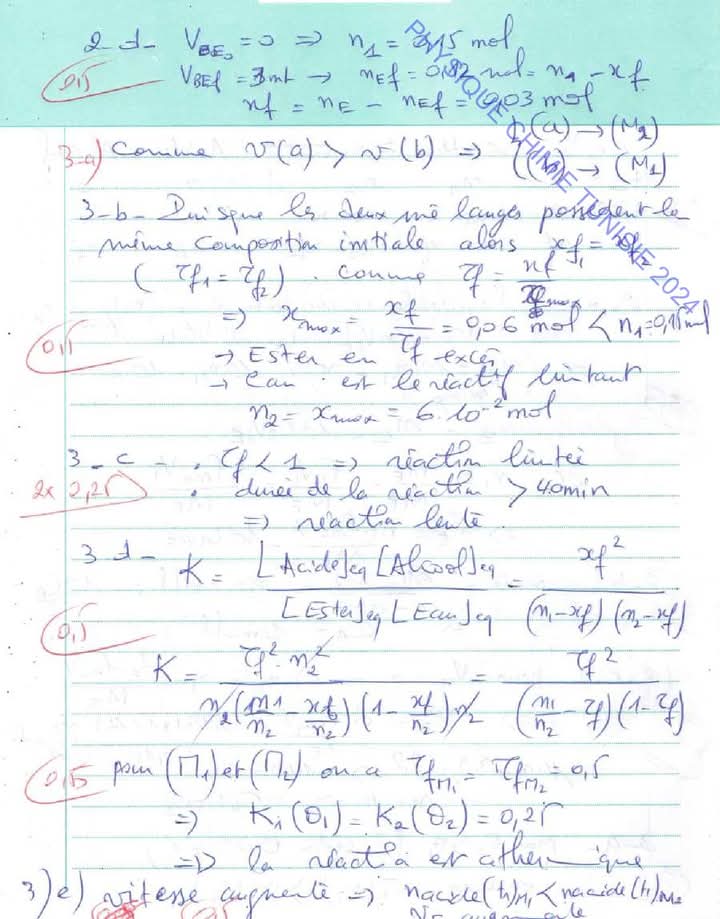 2-d- V_BE₀ = 0 ⇒ n₁ = 0,15 mol
0,5
V_BEf = mL → n_Ef = 0,12 mol = n₁ - xf
xf = n_E - n_Ef = 0,03 mol
3-a) Comme v(a) > v(b) ⇒ { (a) → (M₂)
(b) → (M₁)
3-b- Puisque les deux mélanges possèdent la
même composition initiale alors xf₁ =
(τf₁ = τf₂). comme τf = xf / xmax
⇒ xmax = xf / τf = 0,06 mol < n₁ = 0,15 mol
0,5
→ Ester en excés
→ Eau est le réactif limitant
n₂ = xmax = 6.10⁻² mol
3-c- • τf < 1 ⇒ réaction limitée
2x 0,25
• durée de la réaction > 40min
⇒ réaction lente.
3-d- K = [Acide]eq [Alcool]eq / [Ester]eq [Eau]eq = xf² / (n₁-xf) (n₂-xf)
0,5
K = τf² . n₂² / n₂ (n₁/n₂ - xf/n₂) (1 - xf/n₂) n₂ = τf² / (n₁/n₂ - τf) (1 - τf)
0,5
pour (M₁) et (M₂) on a τfM₁ = τfM₂ = 0,5
⇒ K₁(θ₁) = K₂(θ₂) = 0,25
⇒ la réaction est athermique
3)e) vitesse augmente ⇒ nacide(t₁)M₁ < nacide(t₁)M₂
augmente
PHYSIQUE CHIMIE TUNISIE 2024